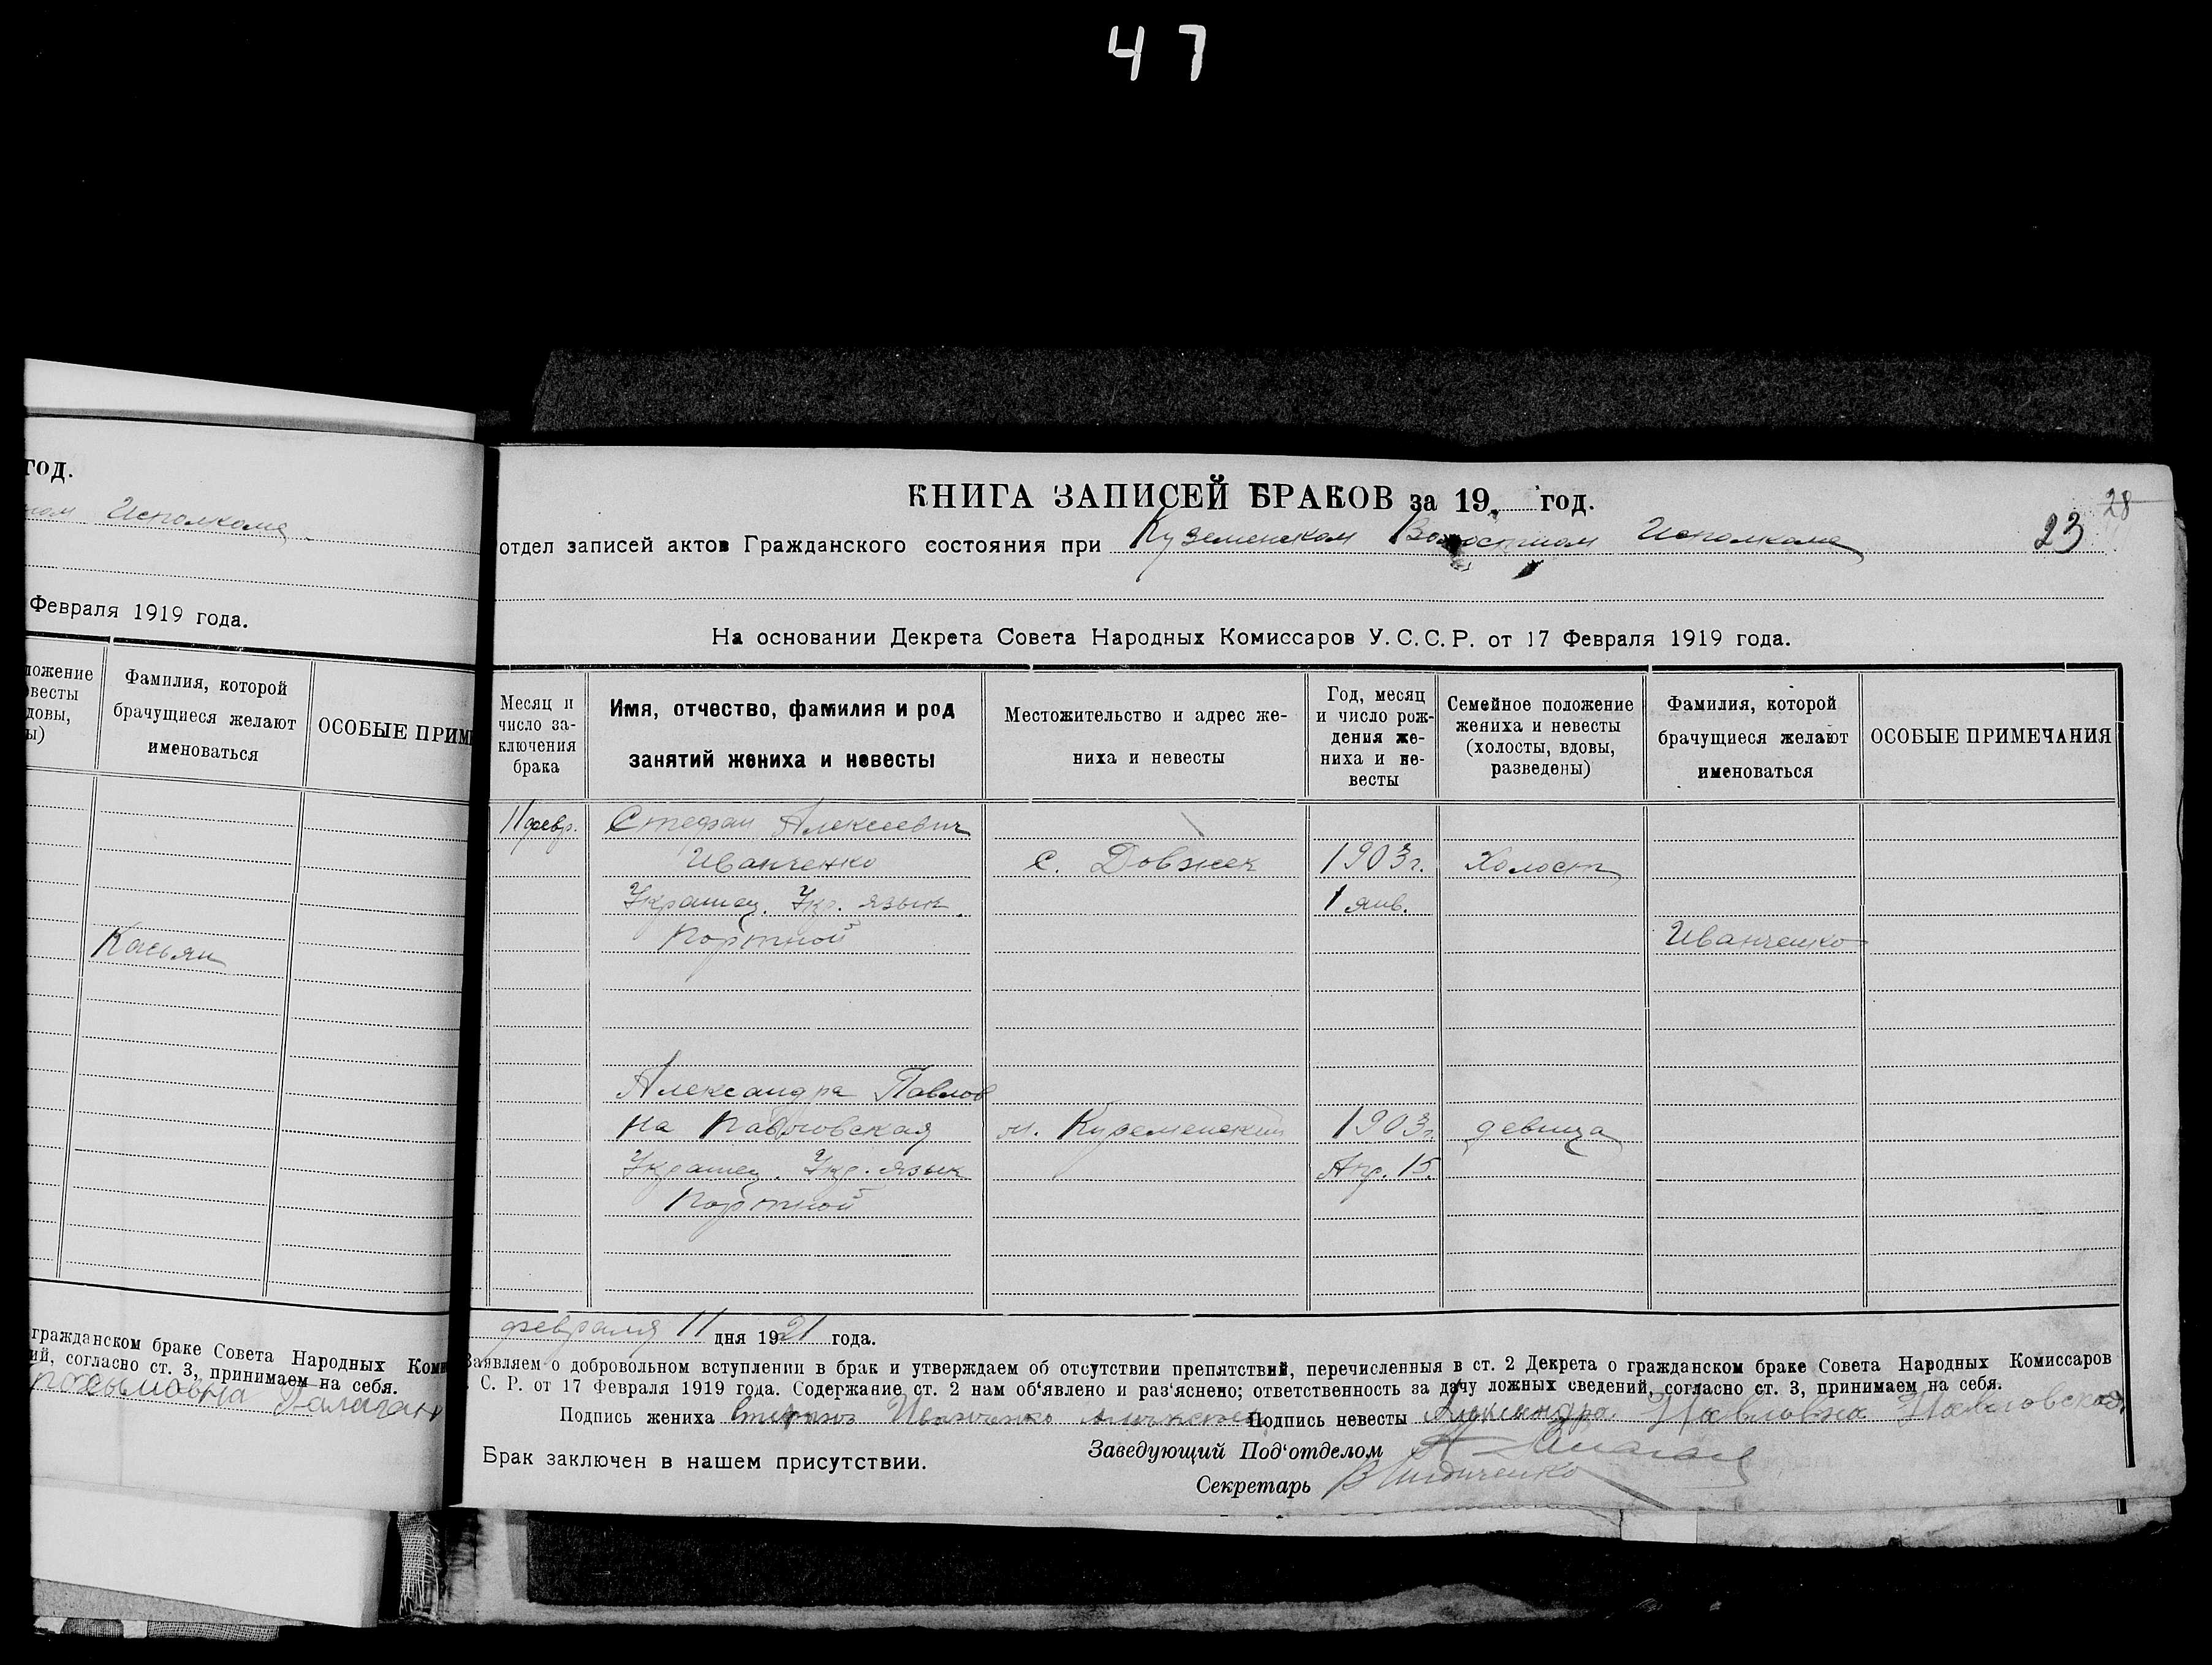 47
год.
Исполкома
Февраля 1919 года.
ложение
весты
довы,
ы)
Фамилия, которой
брачущиеся желают
именоваться
ОСОБЫЕ ПРИМ
Касьян
гражданском браке Совета Народных Коми
ий, согласно ст. 3, принимаем на себя.
Галаган
КНИГА ЗАПИСЕЙ БРАКОВ за 19 год.
28
отдел записей актов Гражданского состояния при Куземенском Волостном Исполкоме
23
На основании Декрета Совета Народных Комиссаров У.С.С.Р. от 17 Февраля 1919 года.
Месяц и
число за-
ключения
брака
Имя, отчество, фамилия и род
занятий жениха и невесты
Местожительство и адрес же-
ниха и невесты
Год, месяц
и число рож-
дения же-
ниха и не-
весты
Семейное положение
жениха и невесты
(холосты, вдовы,
разведены)
Фамилия, которой
брачущиеся желают
именоваться
ОСОБЫЕ ПРИМЕЧАНИЯ
11 февр. Стефан Алексеевич
Иванченко с. Довжек 1903 г. Холост
Украинец. Укр. язык. 1 янв.
Портной Иванченко
Александра Павлов
на Павловская м. Куземенский 1903 г. девица
Украинец. Укр. язык Апр. 15.
Портной
февраля 11 дня 1921 года.
Заявляем о добровольном вступлении в брак и утверждаем об отсутствии препятствий, перечисленныя в ст. 2 Декрета о гражданском браке Совета Народных Комиссаров
С. Р. от 17 Февраля 1919 года. Содержание ст. 2 нам об‘явлено и раз‘яснено; ответственность за дачу ложных сведений, согласно ст. 3, принимаем на себя.
Подпись жениха Иванченко Подпись невесты Александра Павловна Павловская
Заведующий Под‘отделом
Брак заключен в нашем присутствии.
Секретарь